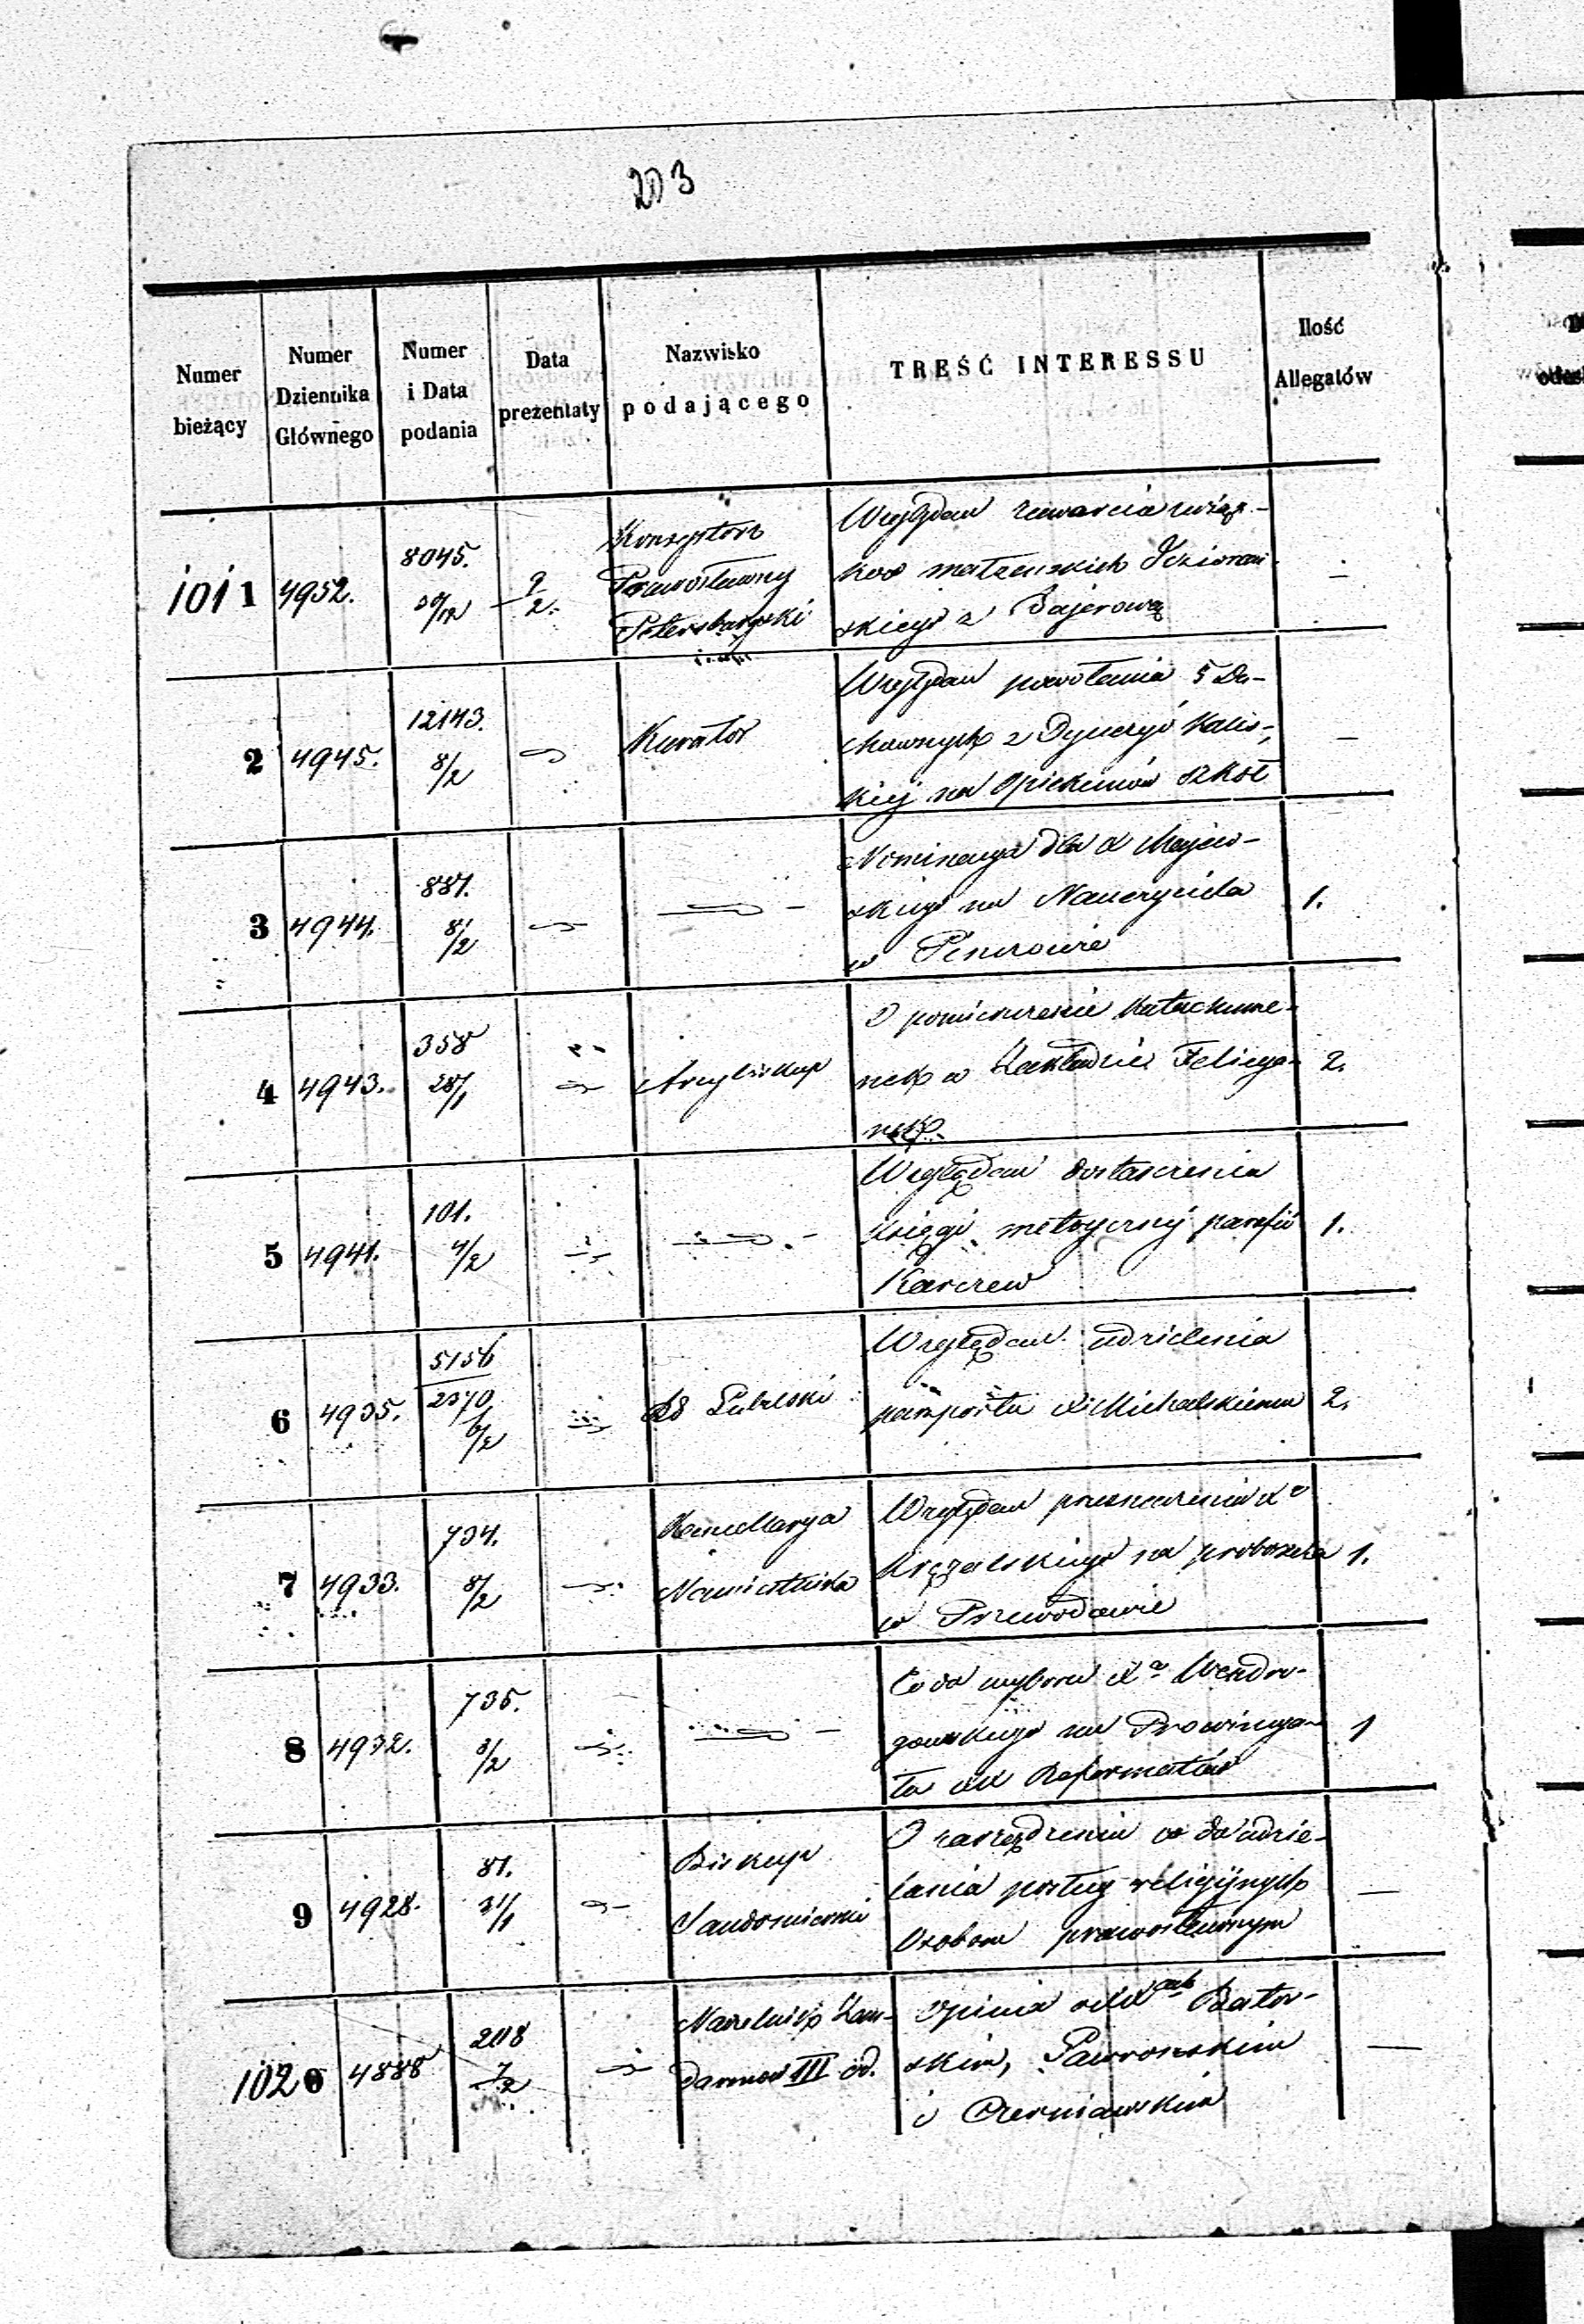 203
Numer bieżący
Numer Dziennika Głównego
Numer i Data podania
Data prezentaty
Nazwisko podającego
TREŚĆ INTERESSU
Ilość Allegatów
1011 4952. 8045. 30/12 9/2.
Konsystorz
Prawosławny
Petersburgski
Względem zawarcia związ-
kow małżenskich
skiego z Bajerową
—
2 4945. 12143. 8/2
Kurator
Względem powołania 5 Du-
chownych z Dyecezyi Kalis-
kiej na Opiekunów szkół
—
3 4944. 887. 8/2
Nominacya dla X Majew-
skiego na Nauczyciela
w
1.
4 4943. 358 28/1
Arcybiskup
O pomieszczenie Katechume-
nek w Zakładzie Felicya-
nek.
2.
5 4941. 101. 4/2
Względem dostarczenia
księgi metrycznej parafii
Karczew
1.
6 4935. 5156 2370 6/2
RG Lubelski
Względem udzielenia
paszportu X Michalskiemu
2.
7 4933. 734. 8/2
Kancellarya
Namiestnika
Względem przeznaczenia Xa
na proboszcza
w Przewodowie
1.
8 4932. 735. 8/2
Co do wyboru Xa
na Prowincya-
ła XX Reformatów
1
9 4928. 81. 31/1
Biskup
Sandomierski
O zarządzeniu co do udzie-
lania posług religijnych
Osobom prawosławnym
—
1020 4888 208 7/2
Naczelnik Żan-
darmów III od.
Opinia o Xach Bator-
skim, Gawrońskim
i Czerniawskim
—